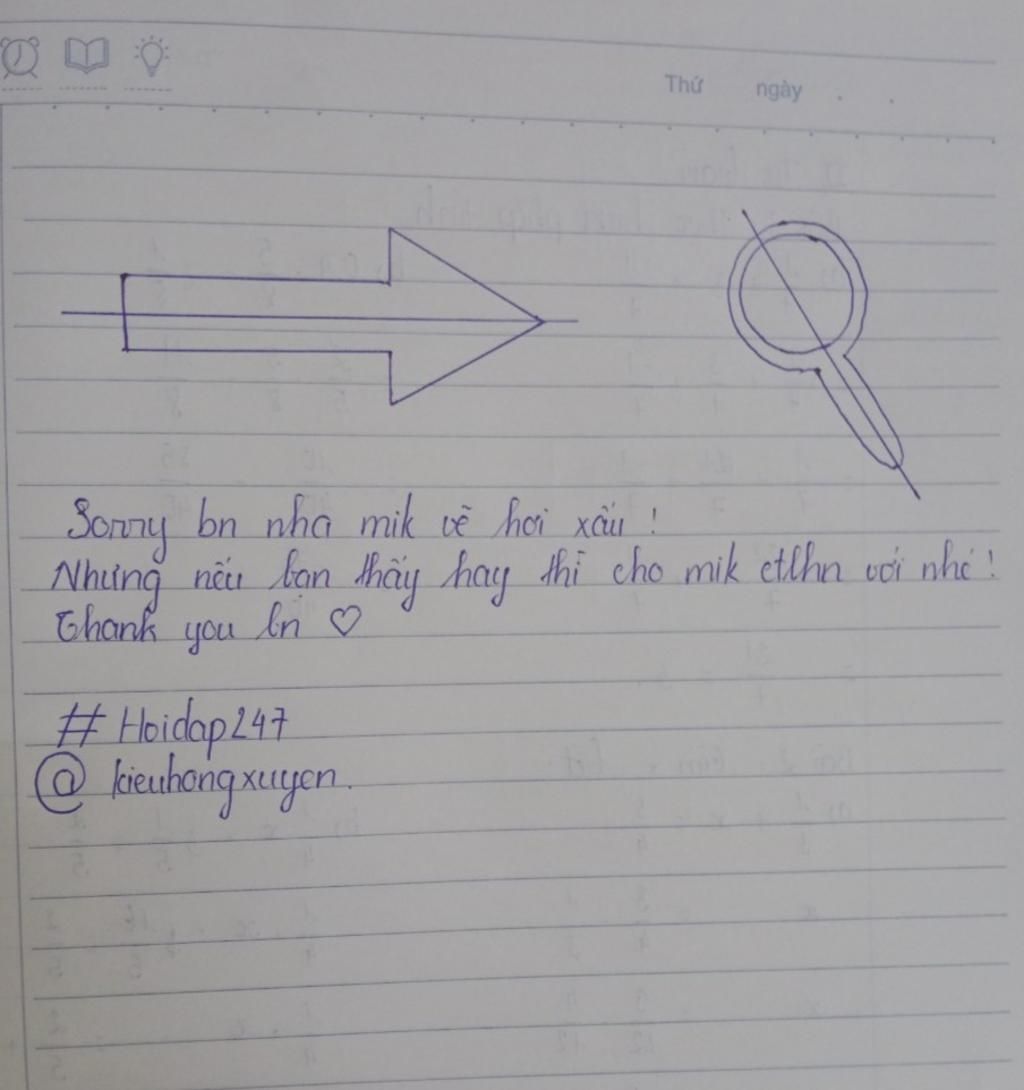 Thứ ngày . .
Sorry bn nha mik vẽ hơi xấu !
Nhưng nếu bạn thấy hay thì cho mik ctlhn với nhé !
Thank you bn ♡
# Hoidap247
@ kieuhongxuyen.